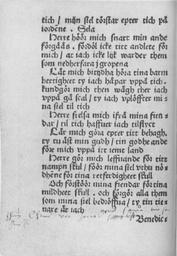 tich / mijn siel törstar epter tich på
iordenne . Sela
Herre höör mich snart min ande
förgåås / fördöl icke titt andlete för
mich / at iach icke lijk warder them
som nedherfara j gropena
Lät mich bittidha höra tina barm
hertigheet ty iach hopas vppå tich,
kundgör mich then wägh ther iach
vppå gå skal / ty iach vplöffter mi
na siel til tich
Herre frelsa mich ifrå mina fien-
dar / til tich haffuer iach tilflycht
Lär mich göra epter titt behagh,
ty tu äst min gudh / tin godhe ande
före mich vppå itt iemt land
Herre gör mich leffuande för titt
nampn skull / för mina siel vthu nö
dhene för tina retferdigheet skull
Och förstöör mina fiendar för tina
mildheet skull / och förgör alla them
som mina siel bedröffua / ty tin tie-
nare är iach
Benedic=